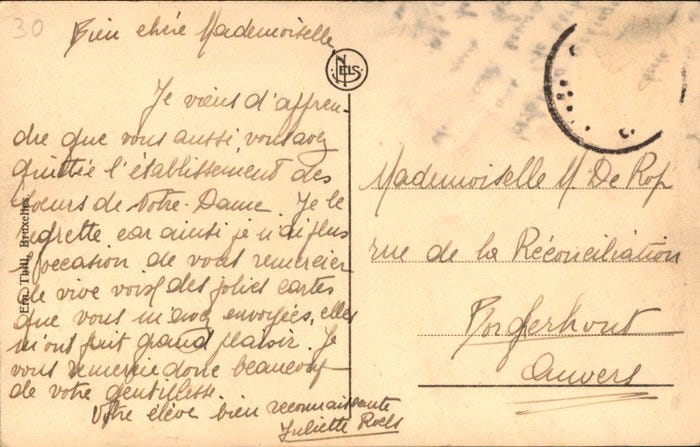 30
Bien chère Mademoiselle
NELS
Je viens d'appren-
dre que vous aussi vous avez
quittée l'établissement des
Soeurs de Notre-Dame. Je le
regrette car ainsi je n'ai plus
l'occasion de vous remercier
de vive voix des jolies cartes
que vous m'avez envoyées, elles
m'ont fait grand plaisir. Je
vous remercie donc beaucoup
de votre gentillesse.
Votre élève bien reconnaissante
Juliette Roels
Ern. Thill, Bruxelles
Mademoiselle M De Rop
rue de la Réconciliation
Borgerhout
Anvers